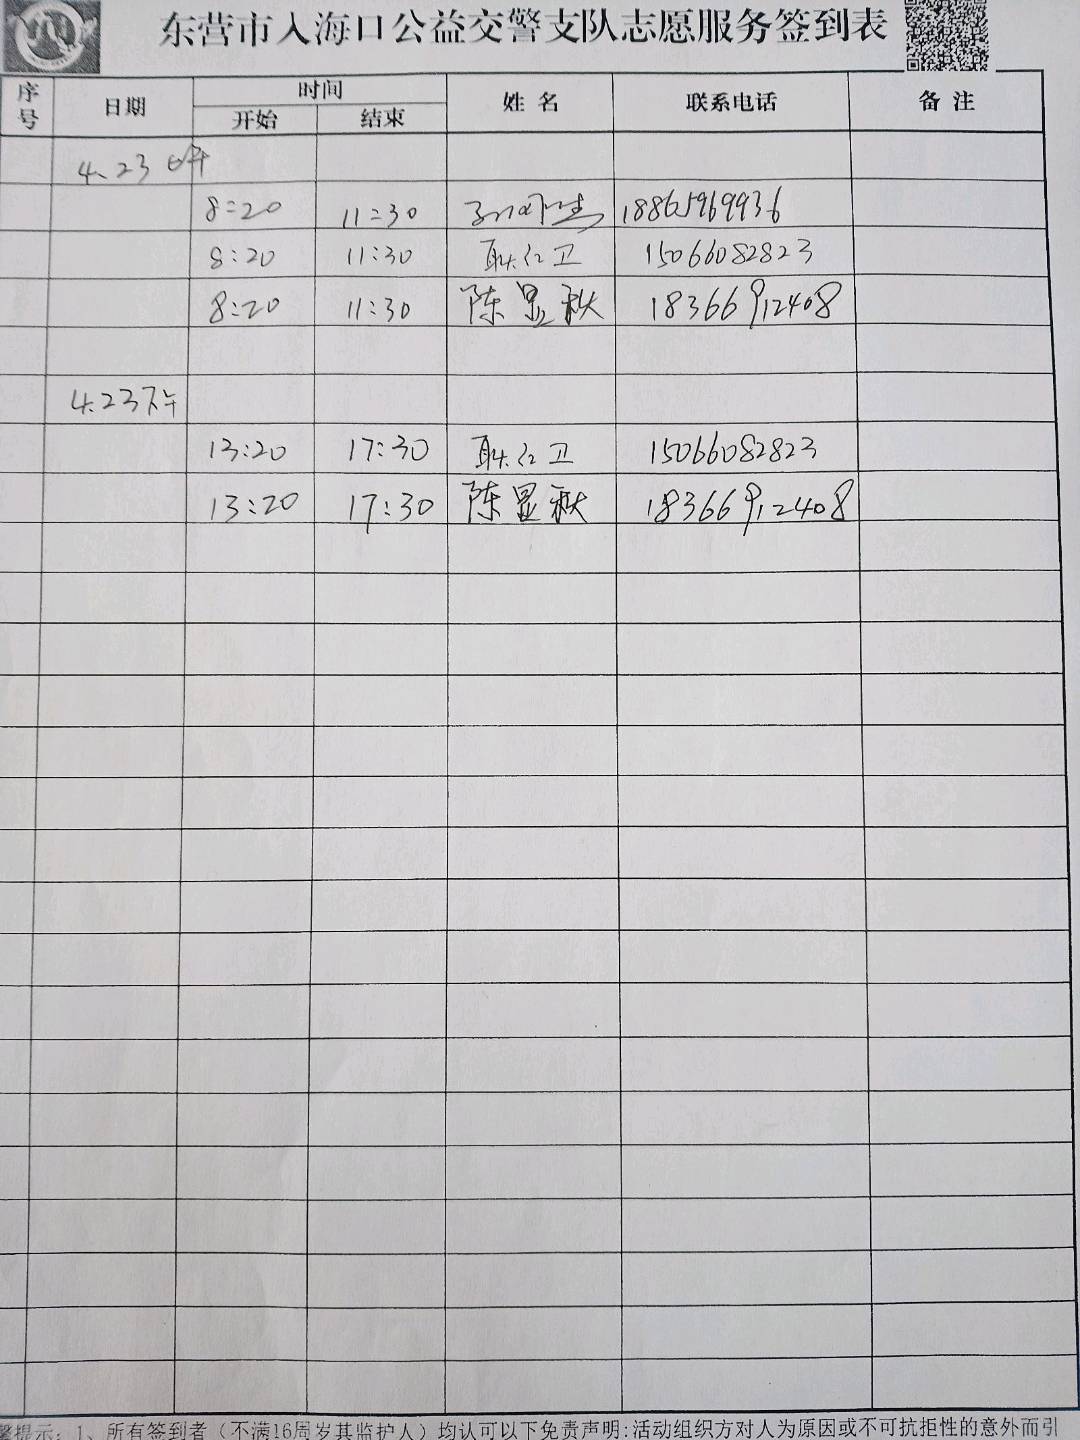 东营市入海口公益交警支队志愿服务签到表
序号 日期 时间 姓名 联系电话 备注
开始 结束
4.23上午
8:20 11:30 18865969936
8:20 11:30 耿红卫 15066082823
8:20 11:30 陈显秋 18366912408
4.23下午
13:20 17:30 耿红卫 15066082823
13:20 17:30 陈显秋 18366912408
馨提示:1、所有签到者(不满16周岁其监护人)均认可以下免责声明:活动组织方对人为原因或不可抗拒性的意外而引